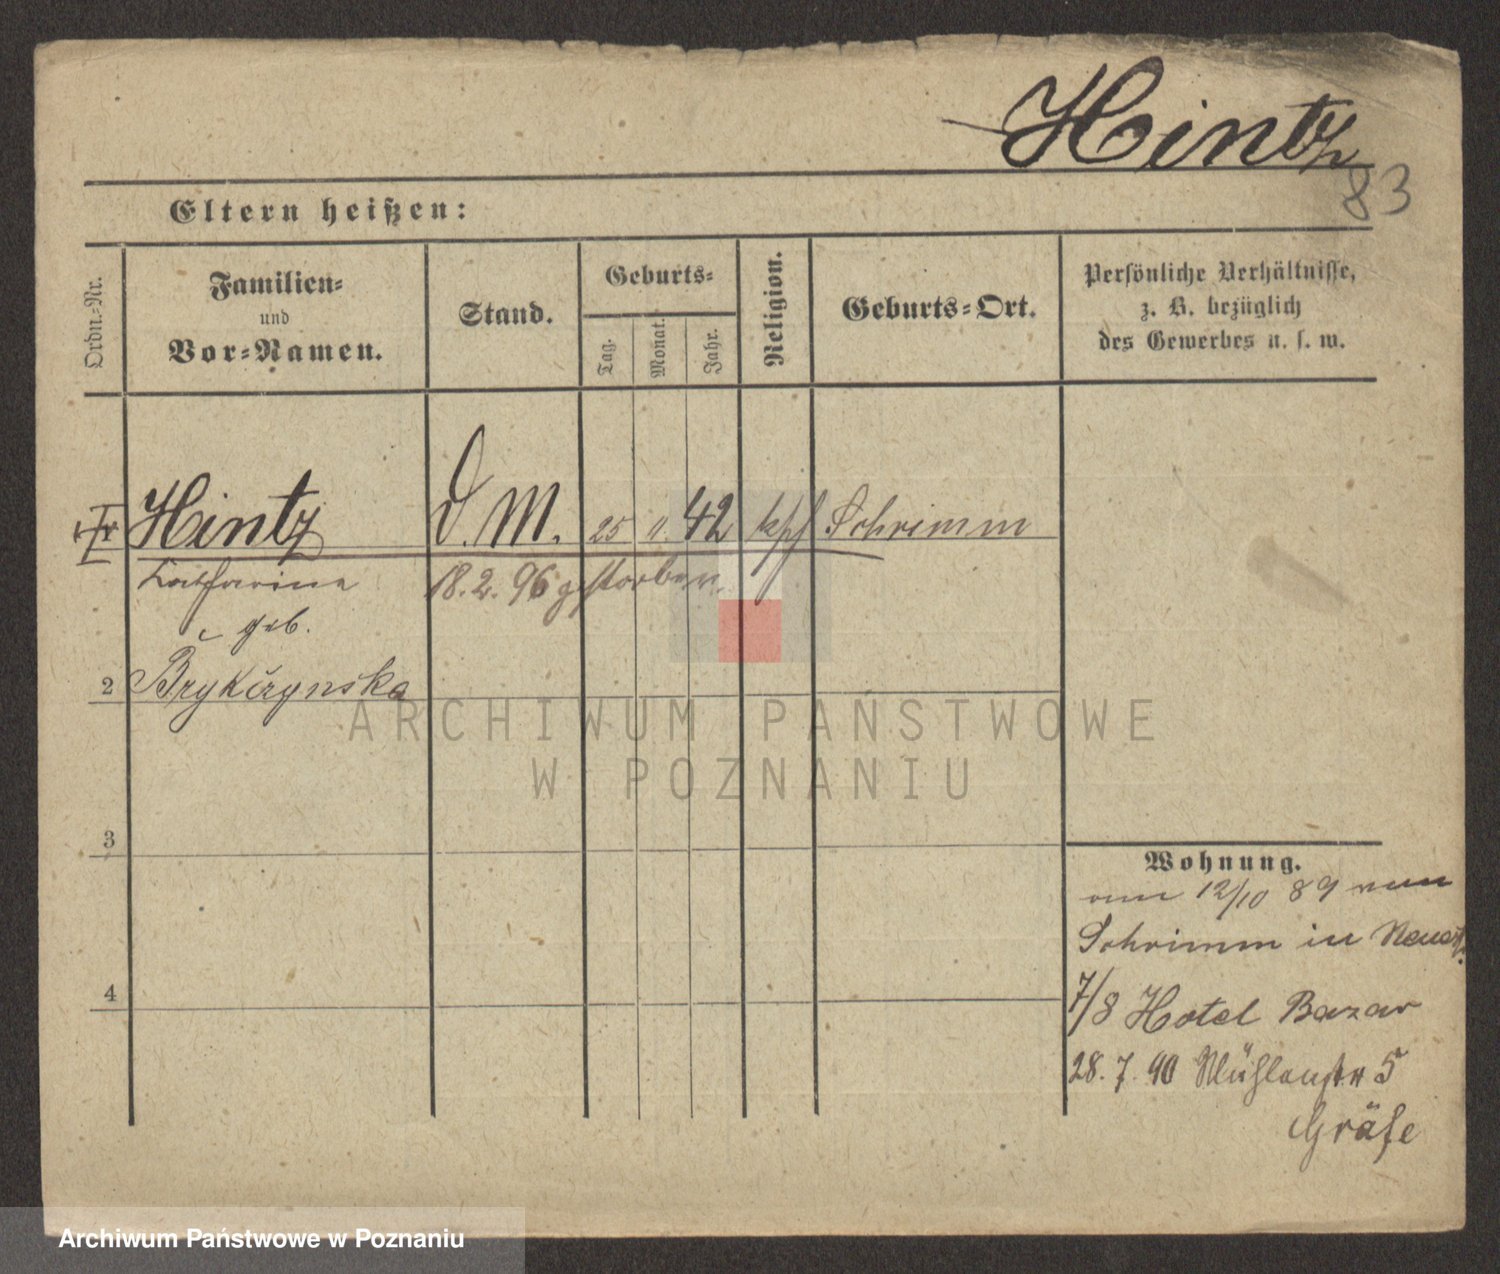 Hintz
83
Eltern heißen:
Ordn.-Nr.
Familien-
und
Vor-Namen.
Stand.
Geburts-
Tag.
Monat.
Jahr.
Religion.
Geburts-Ort.
Persönliche Verhältnisse,
z. B. bezüglich
des Gewerbes u. s. w.
Hintz D. M. 25 11. 42 kath Schrimm
Katharina 18. 2. 96 gestorben.
geb.
2 Brykczynska
ARCHIWUM PAŃSTWOWE
W POZNANIU
3
4
Wohnung.
am 12/10 89 von
Schrimm in Neuest.
7/8 Hotel Bazar
28. 7. 90 Mühlenstr 5
Gräfe
Archiwum Państwowe w Poznaniu